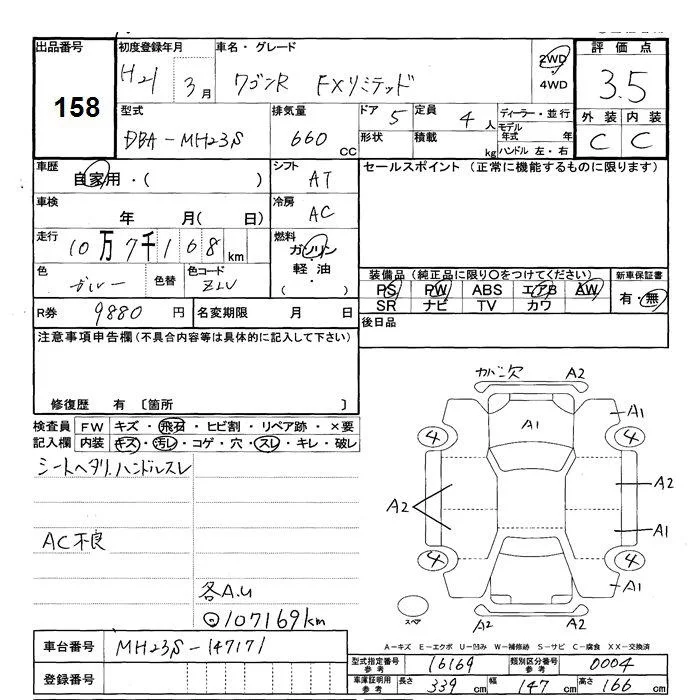 出品番号 初度登録年月 車名・グレード 評価点
158 H21 3月 ワゴンR FXリミテッド 2WD 3.5
4WD
型式 排気量 ドア 5 定員 4人 ディーラー・並行 外装 内装
DBA-MH23S 660 CC 形状 積載 kg モデル年式 年 C C
ハンドル 左・右
車歴 シフト セールスポイント (正常に機能するものに限ります)
自家用・( ) AT
車検 冷房
年 月( 日) AC
走行 燃料
10万7千168km ガソリン
軽油
色 色替 色コード ・( ) 装備品 (純正品に限り○をつけてください) 新車保証書
ZLV PS PW ABS エアB AW 有・無
SR ナビ TV カワ
R券 9880円 名変期限 月 日 後日品
注意事項申告欄(不具合内容等は具体的に記入して下さい)
修復歴 有 〔箇所 〕
カバー欠 A2
検査員 FW キズ・飛石・ヒビ割・リペア跡・×要
記入欄 内装 キズ・汚レ・コゲ・穴・スレ・キレ・破レ
A1 A1
4 4
シートヘタリ.ハンドルスレ
A2 A2
A1
AC不良
4 4
各A.U A1
◎107169km スペア A2 A2
A-キズ E-エクボ U-凹み W-補修跡 S-サビ C-腐食 XX-交換済
車台番号 MH23S-147171
型式指定番号 参考 16169 類別区分番号 参考 0004
登録番号 車庫証明用 参考 長さ 339cm 幅 147cm 高さ 166cm